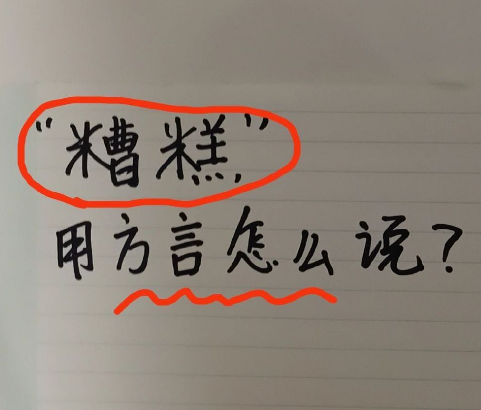 “糟糕”
用方言怎么说？